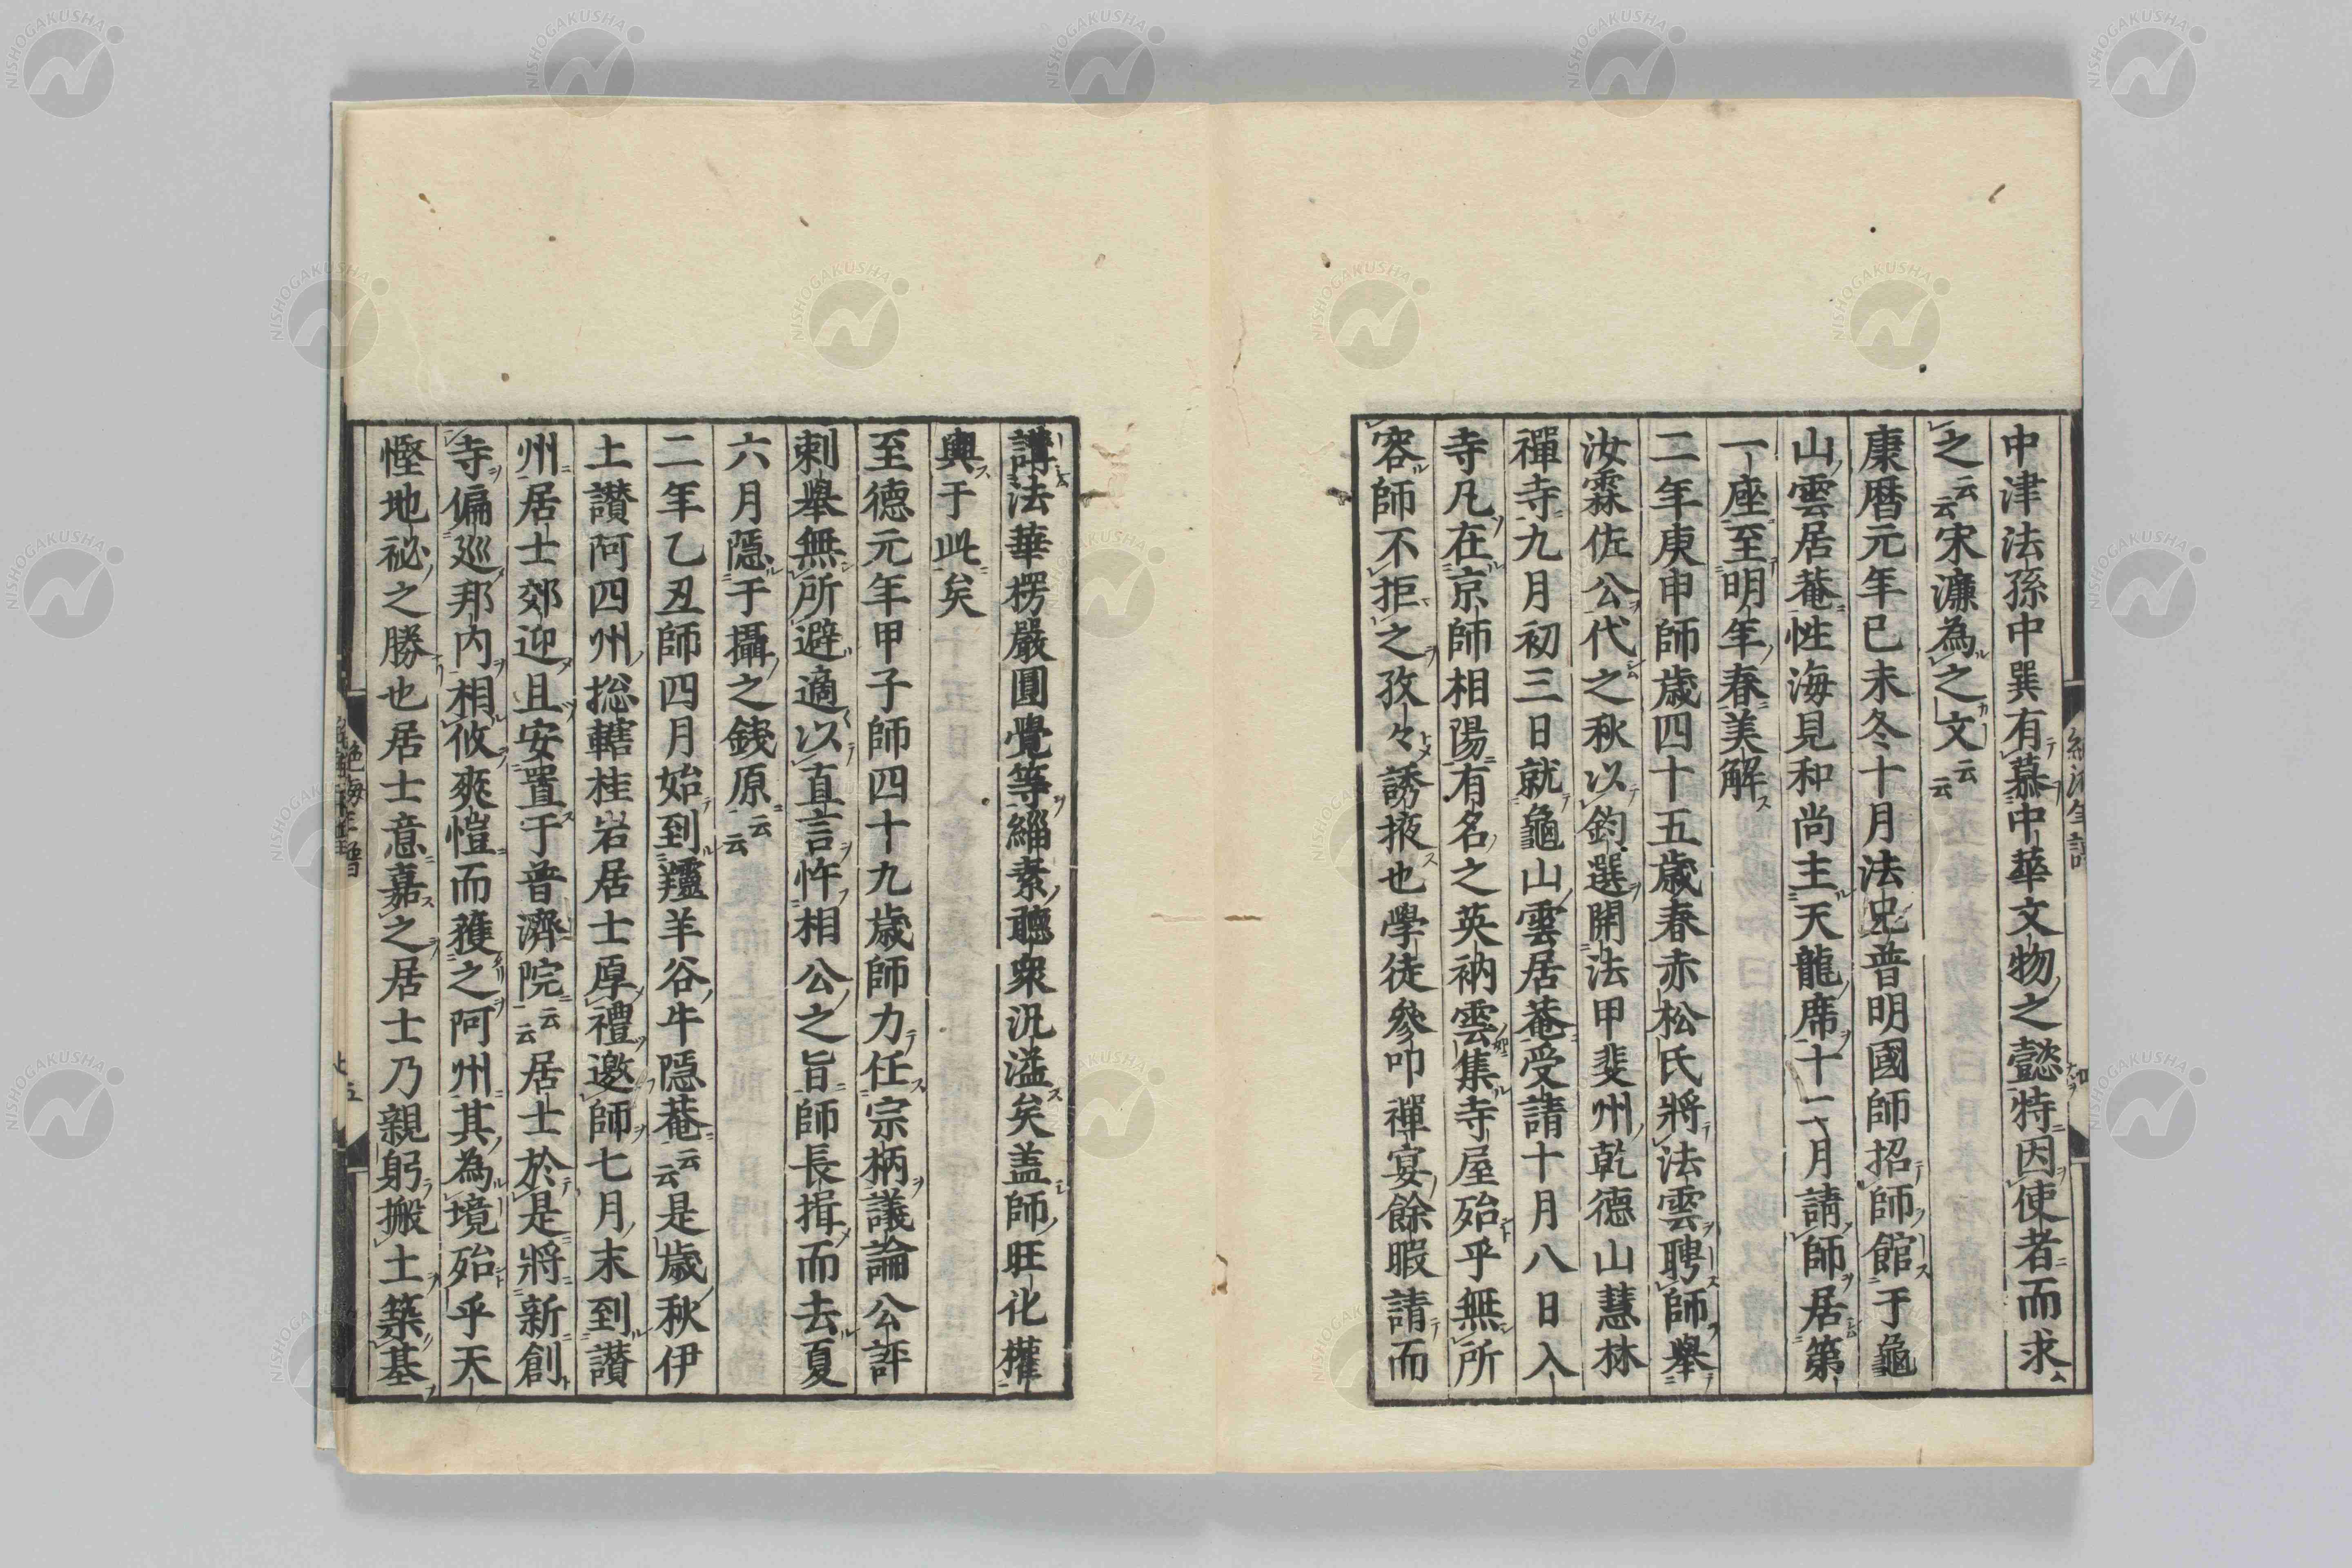 中津法孫中巽有慕中華文物之懿特因使者而求
之云云宋濂為之文云云
康暦元年已未冬十月法兄普明國師招師館于龜
山雲居菴性海見和尚主天龍席十二月請師居第
一座至明年春美解
二年庚申師歳四十五歳春赤松氏將法雲聘師舉
汝霖佐公代之秋以鈞選開法甲斐州乾德山慧林
禪寺九月初三日就龜山雲居菴受請十月八日入
寺凡在京師相陽有名之英衲雲集寺屋殆乎無所
容師不拒之孜々誘掖也學徒參叩禪宴餘暇請而
講法華楞嚴圓覺等緇素聽衆汎溢矣盖師旺化權
輿于此矣
至德元年甲子師四十九歳師力任宗柄議論公評
刺舉無所避適以直言忤相公之旨師長揖而去夏
六月隱于攝之錢原云云
二年乙丑師四月始到羶羊谷牛隱菴云云是歳秋伊
土讃阿四州揔轄桂岩居士厚禮邀師七月末到讃
州居士郊迎且安置于普濟院云云居士於是將新創
寺偏巡邦内相攸爽愷而獲之阿州其為境殆乎天
慳地祕之勝也居士意嘉之居士乃親躬搬土築基
絶海年譜
五
NISHOGAKUSHA